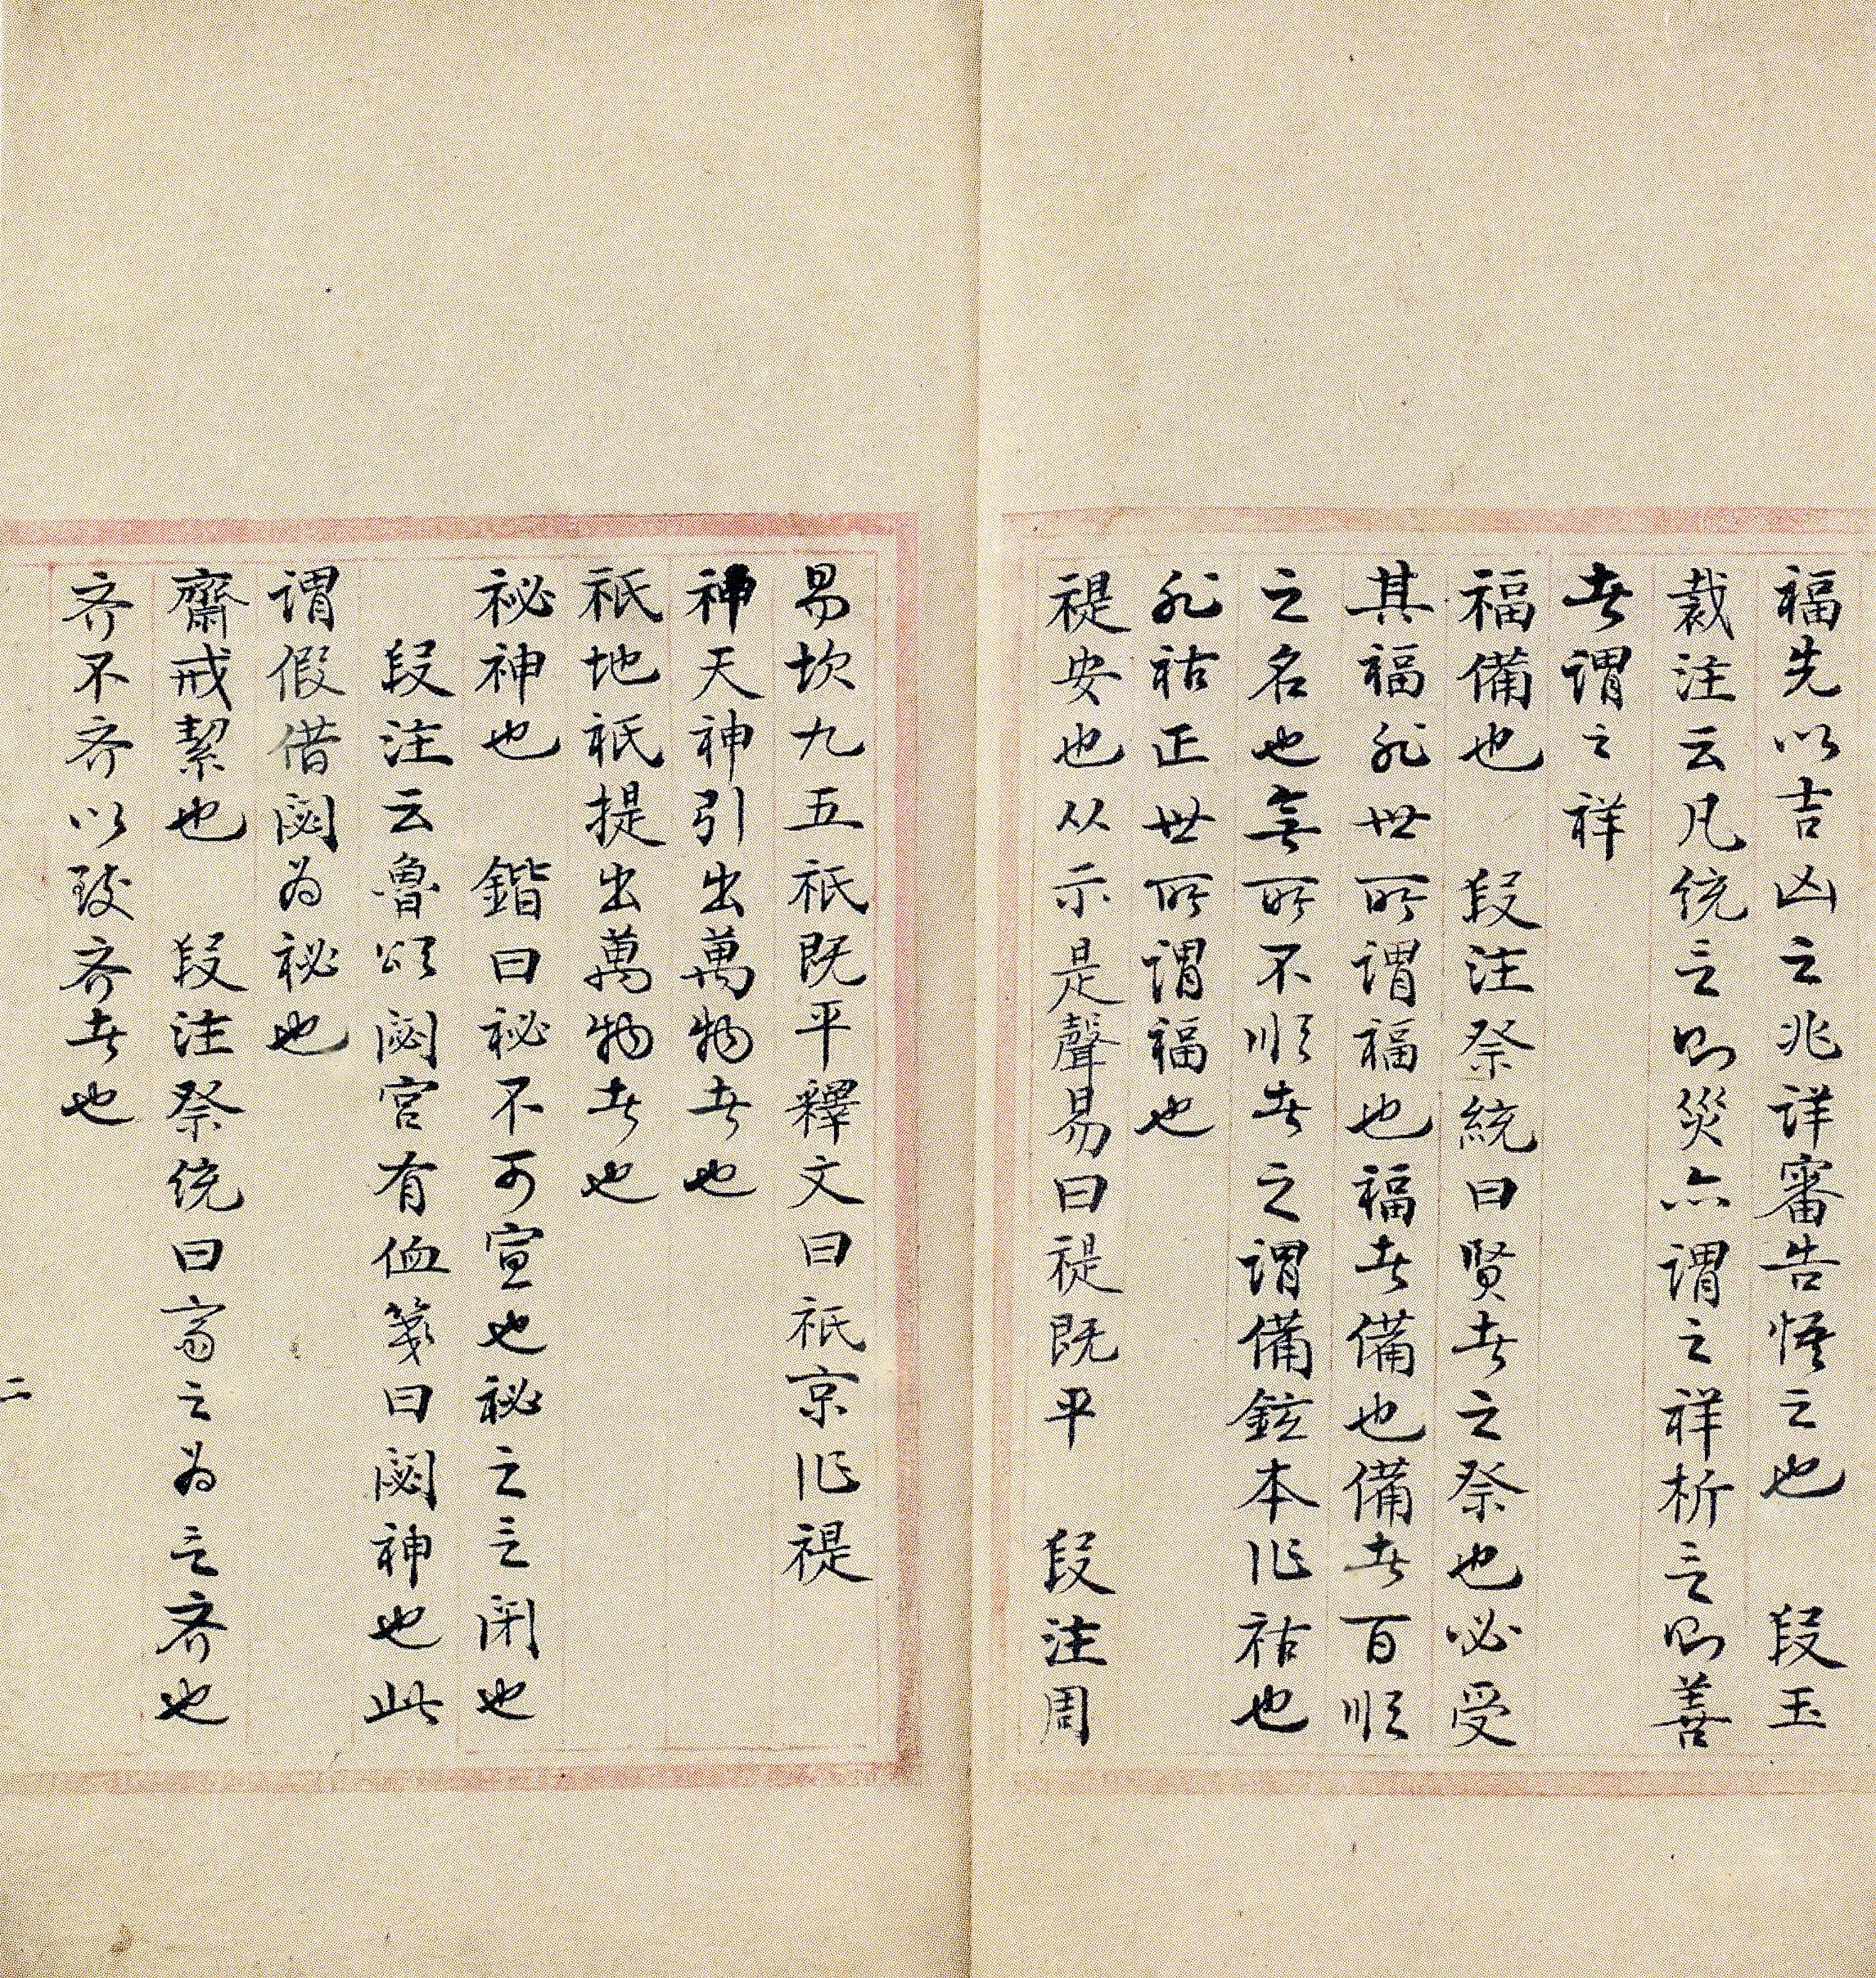 福先以吉凶之兆详審告悟之也　段玉
裁注云凡统言则災亦謂之祥析言则善
者謂之祥
福備也　段注祭統曰賢者之祭也必受
其福非世所謂福也福者備也備者百順
之名也無所不順者之謂備鉉本作祜也
非祜正世所謂福也
禔安也从示是聲易曰禔既平　段注周
易坎九五祇既平釋文曰祇京作禔
神天神引出萬物者也
祇地祇提出萬物者也
祕神也　鍇曰祕不可宣也祕之言閉也
段注云魯頌閟宫有侐箋曰閟神也此
謂假借閟为祕也
齋戒絜也　段注祭统曰齋之为言齐也
齐不齐以致齐者也
二